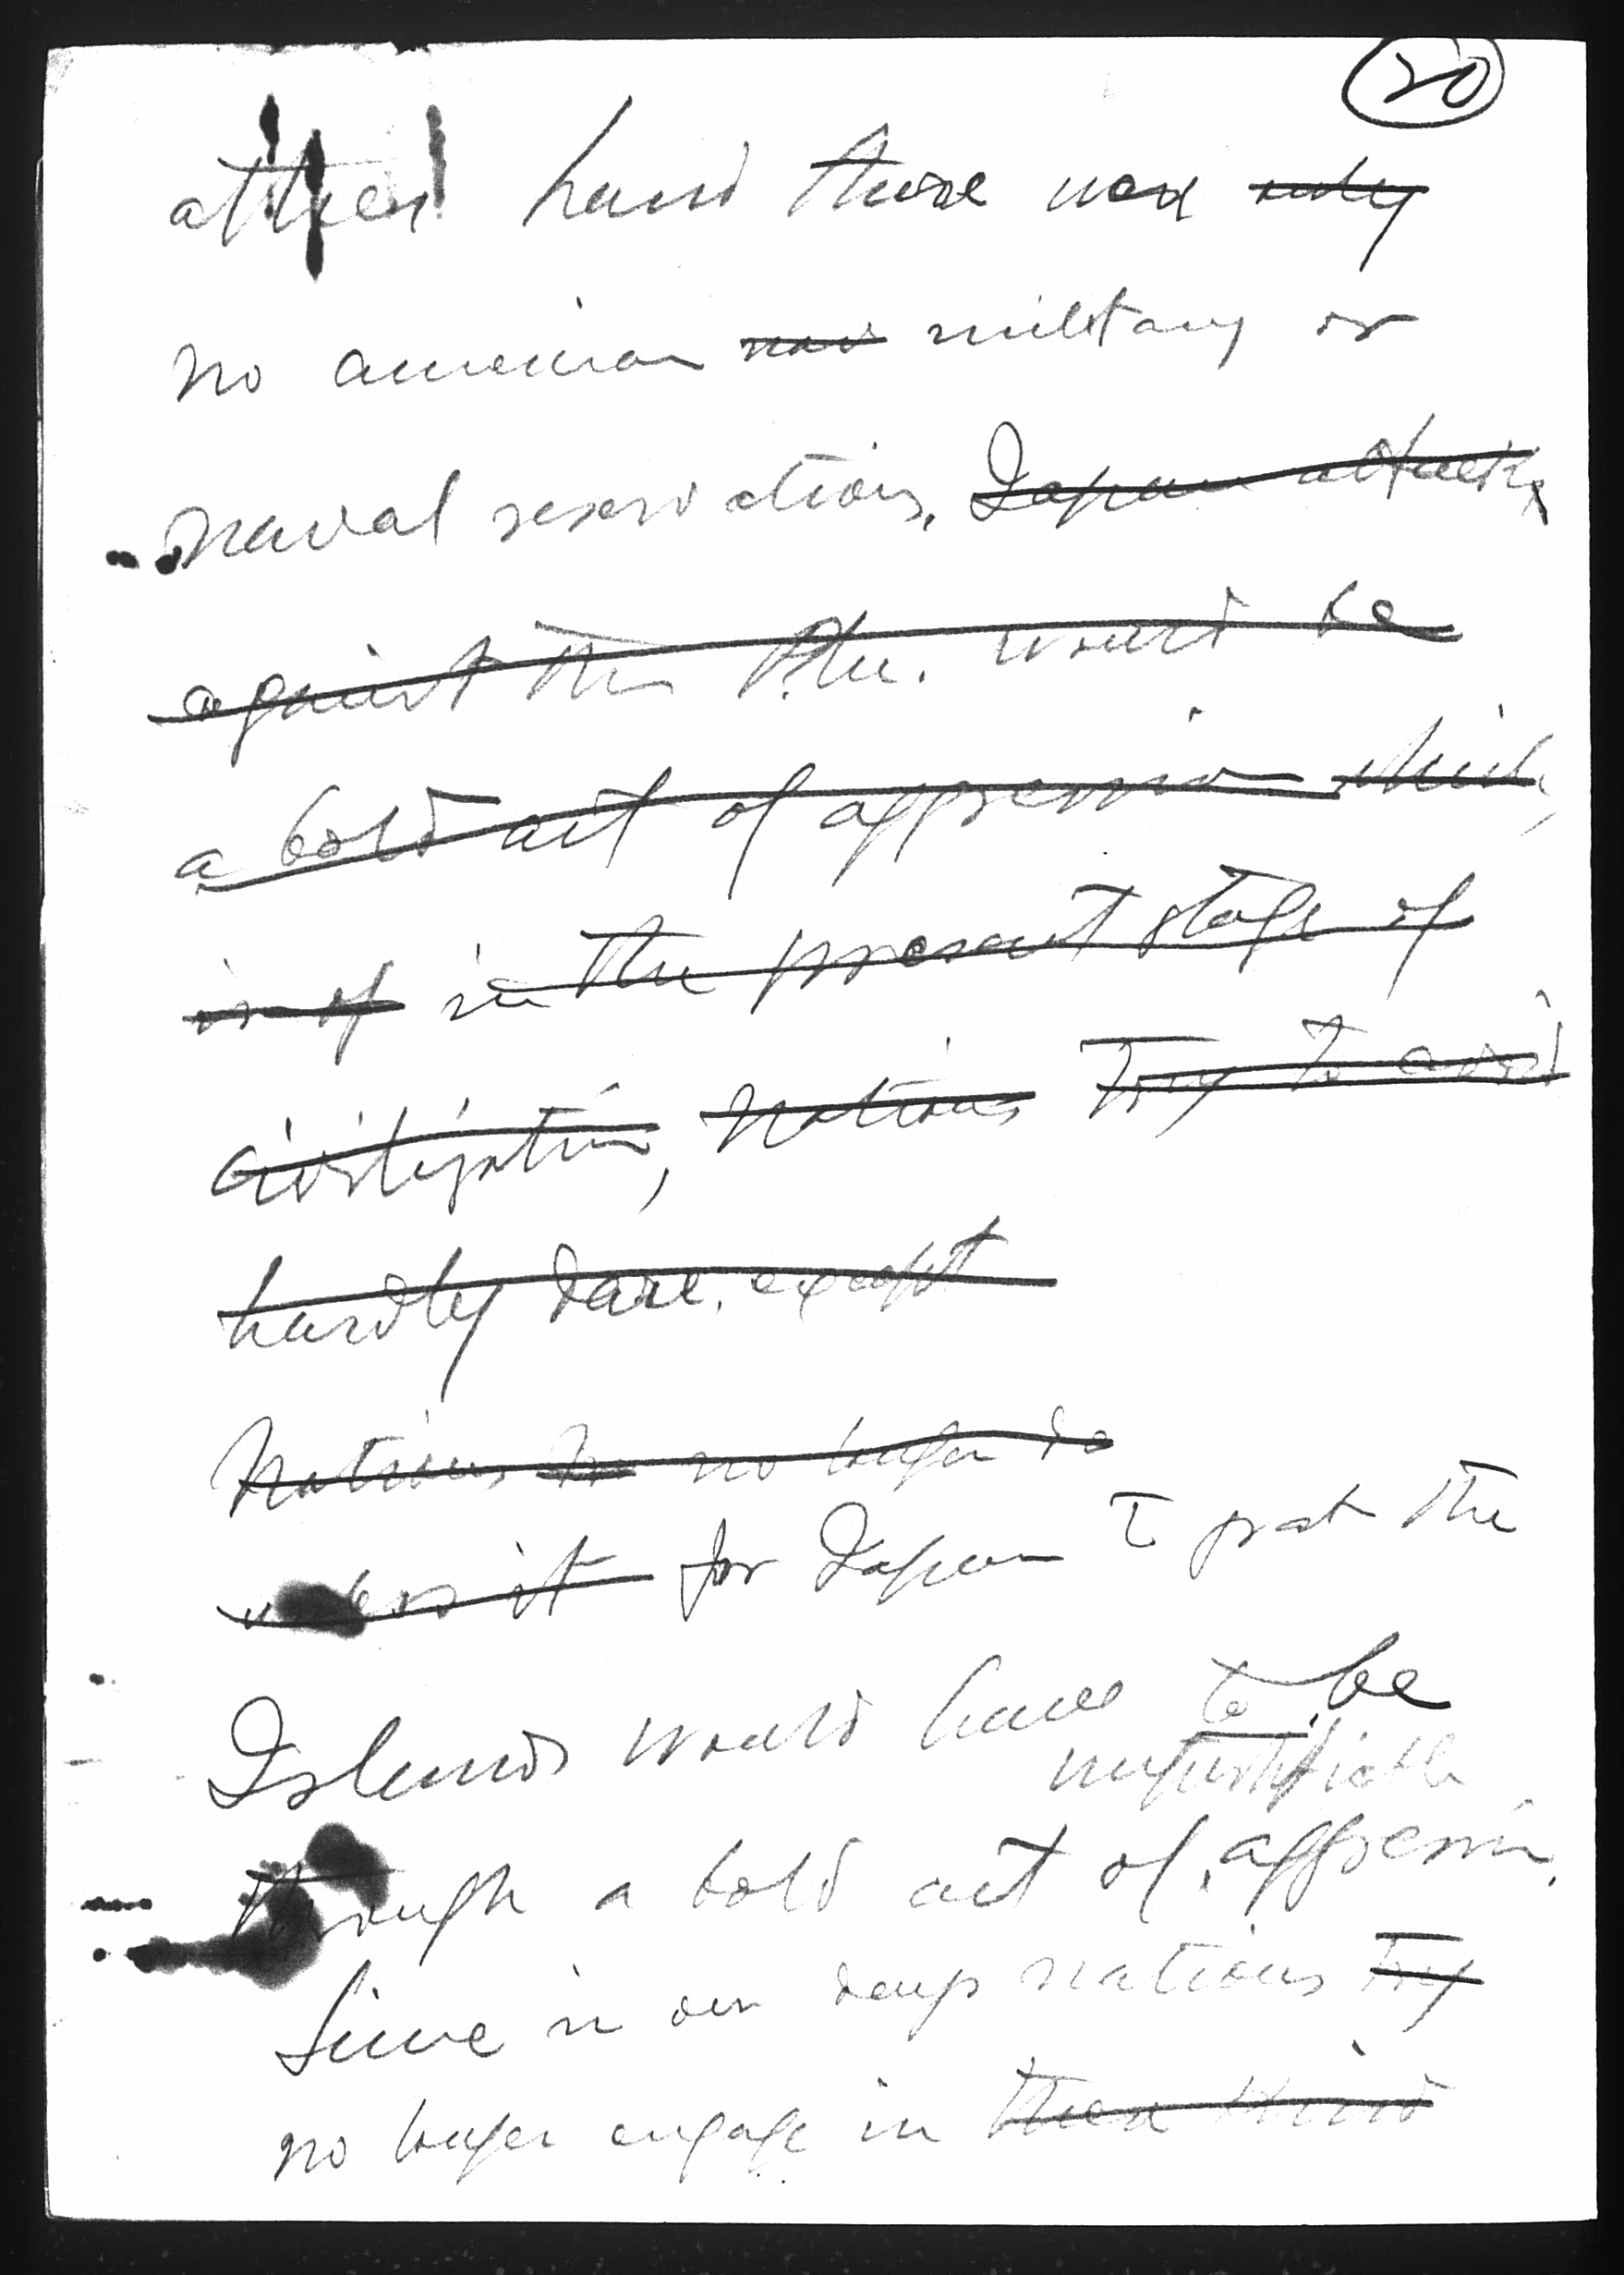 20
other hand there were only
no american nav military or
naval reservations. Japan attack
against the P.I. would be
a bold act of aggression which,
is of in the present stage of
civilization, nations try to avoid
hardly dare. except
Nations no longer do
unless it for Japan to grab the
Islands would have to be
unjustifiable
through a bold act of aggression.
Since in our days nations try
no longer engage in